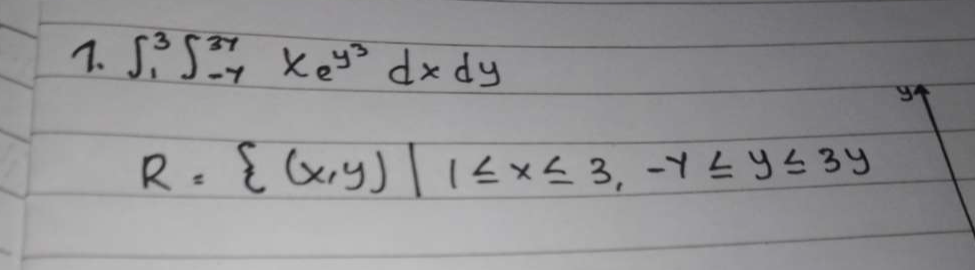 1. ∫₁³ ∫₋y³ʸ xe^{y³} dx dy
y
R = { (x,y) | 1 ≤ x ≤ 3, -y ≤ y ≤ 3y